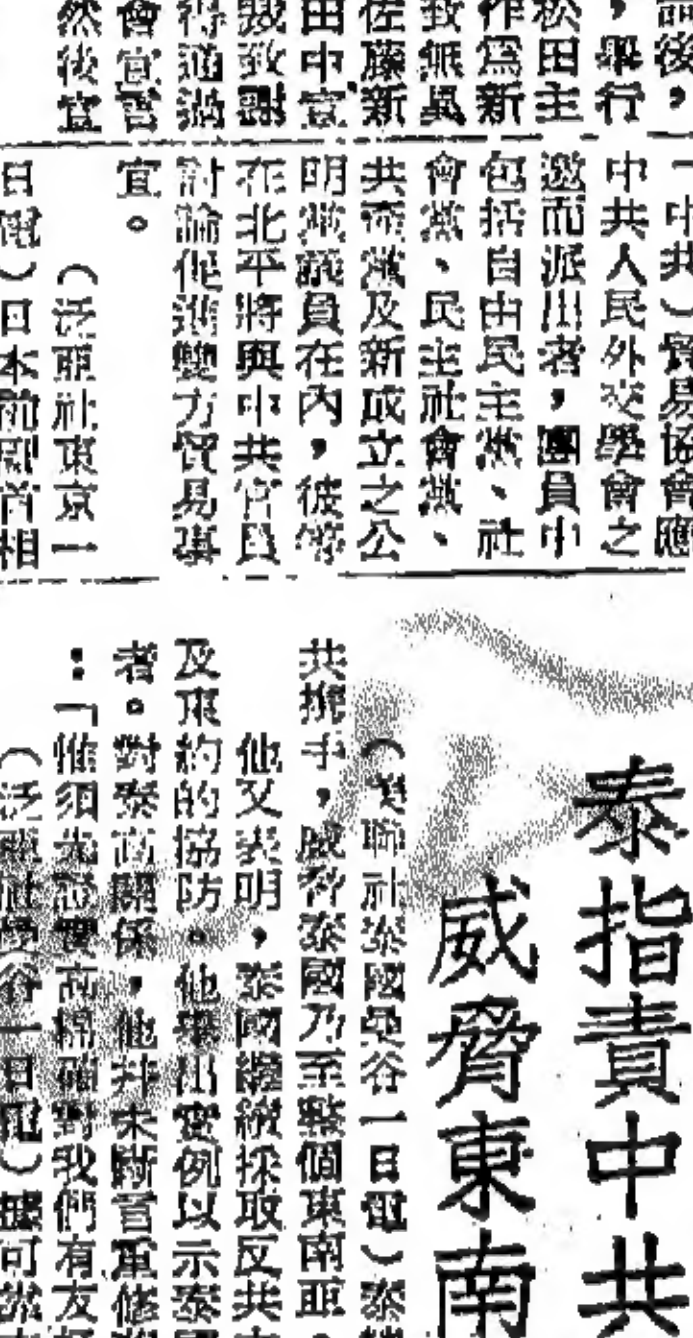 品後，
，舉行
松田主
作為新
致無異
佐藤新
田中宣
誠致謝
得通過
會宣言
然後宣
一中共）貿易協會應
中共人民外交學會之
邀而派出者，團員中
包括自由民主黨、社
會黨、民主社會黨、
共產黨及新成立之公
明黨議員在內，彼等
在北平將與中共官員
討論促進雙方貿易事
宜。
（泛亞社東京一
日電）日本前副首相
泰指責中共
威脅東南
（美聯社泰國曼谷一日電）泰
共携手，威脅泰國乃至整個東南亞。
他又表明，泰國繼續採取反共
及東約的協防。他舉出實例以示泰國
者。對泰高關係，他并未斷言重修
：「惟須先證實高棉確對我們有友
（泛亞社曼谷一日電）據可